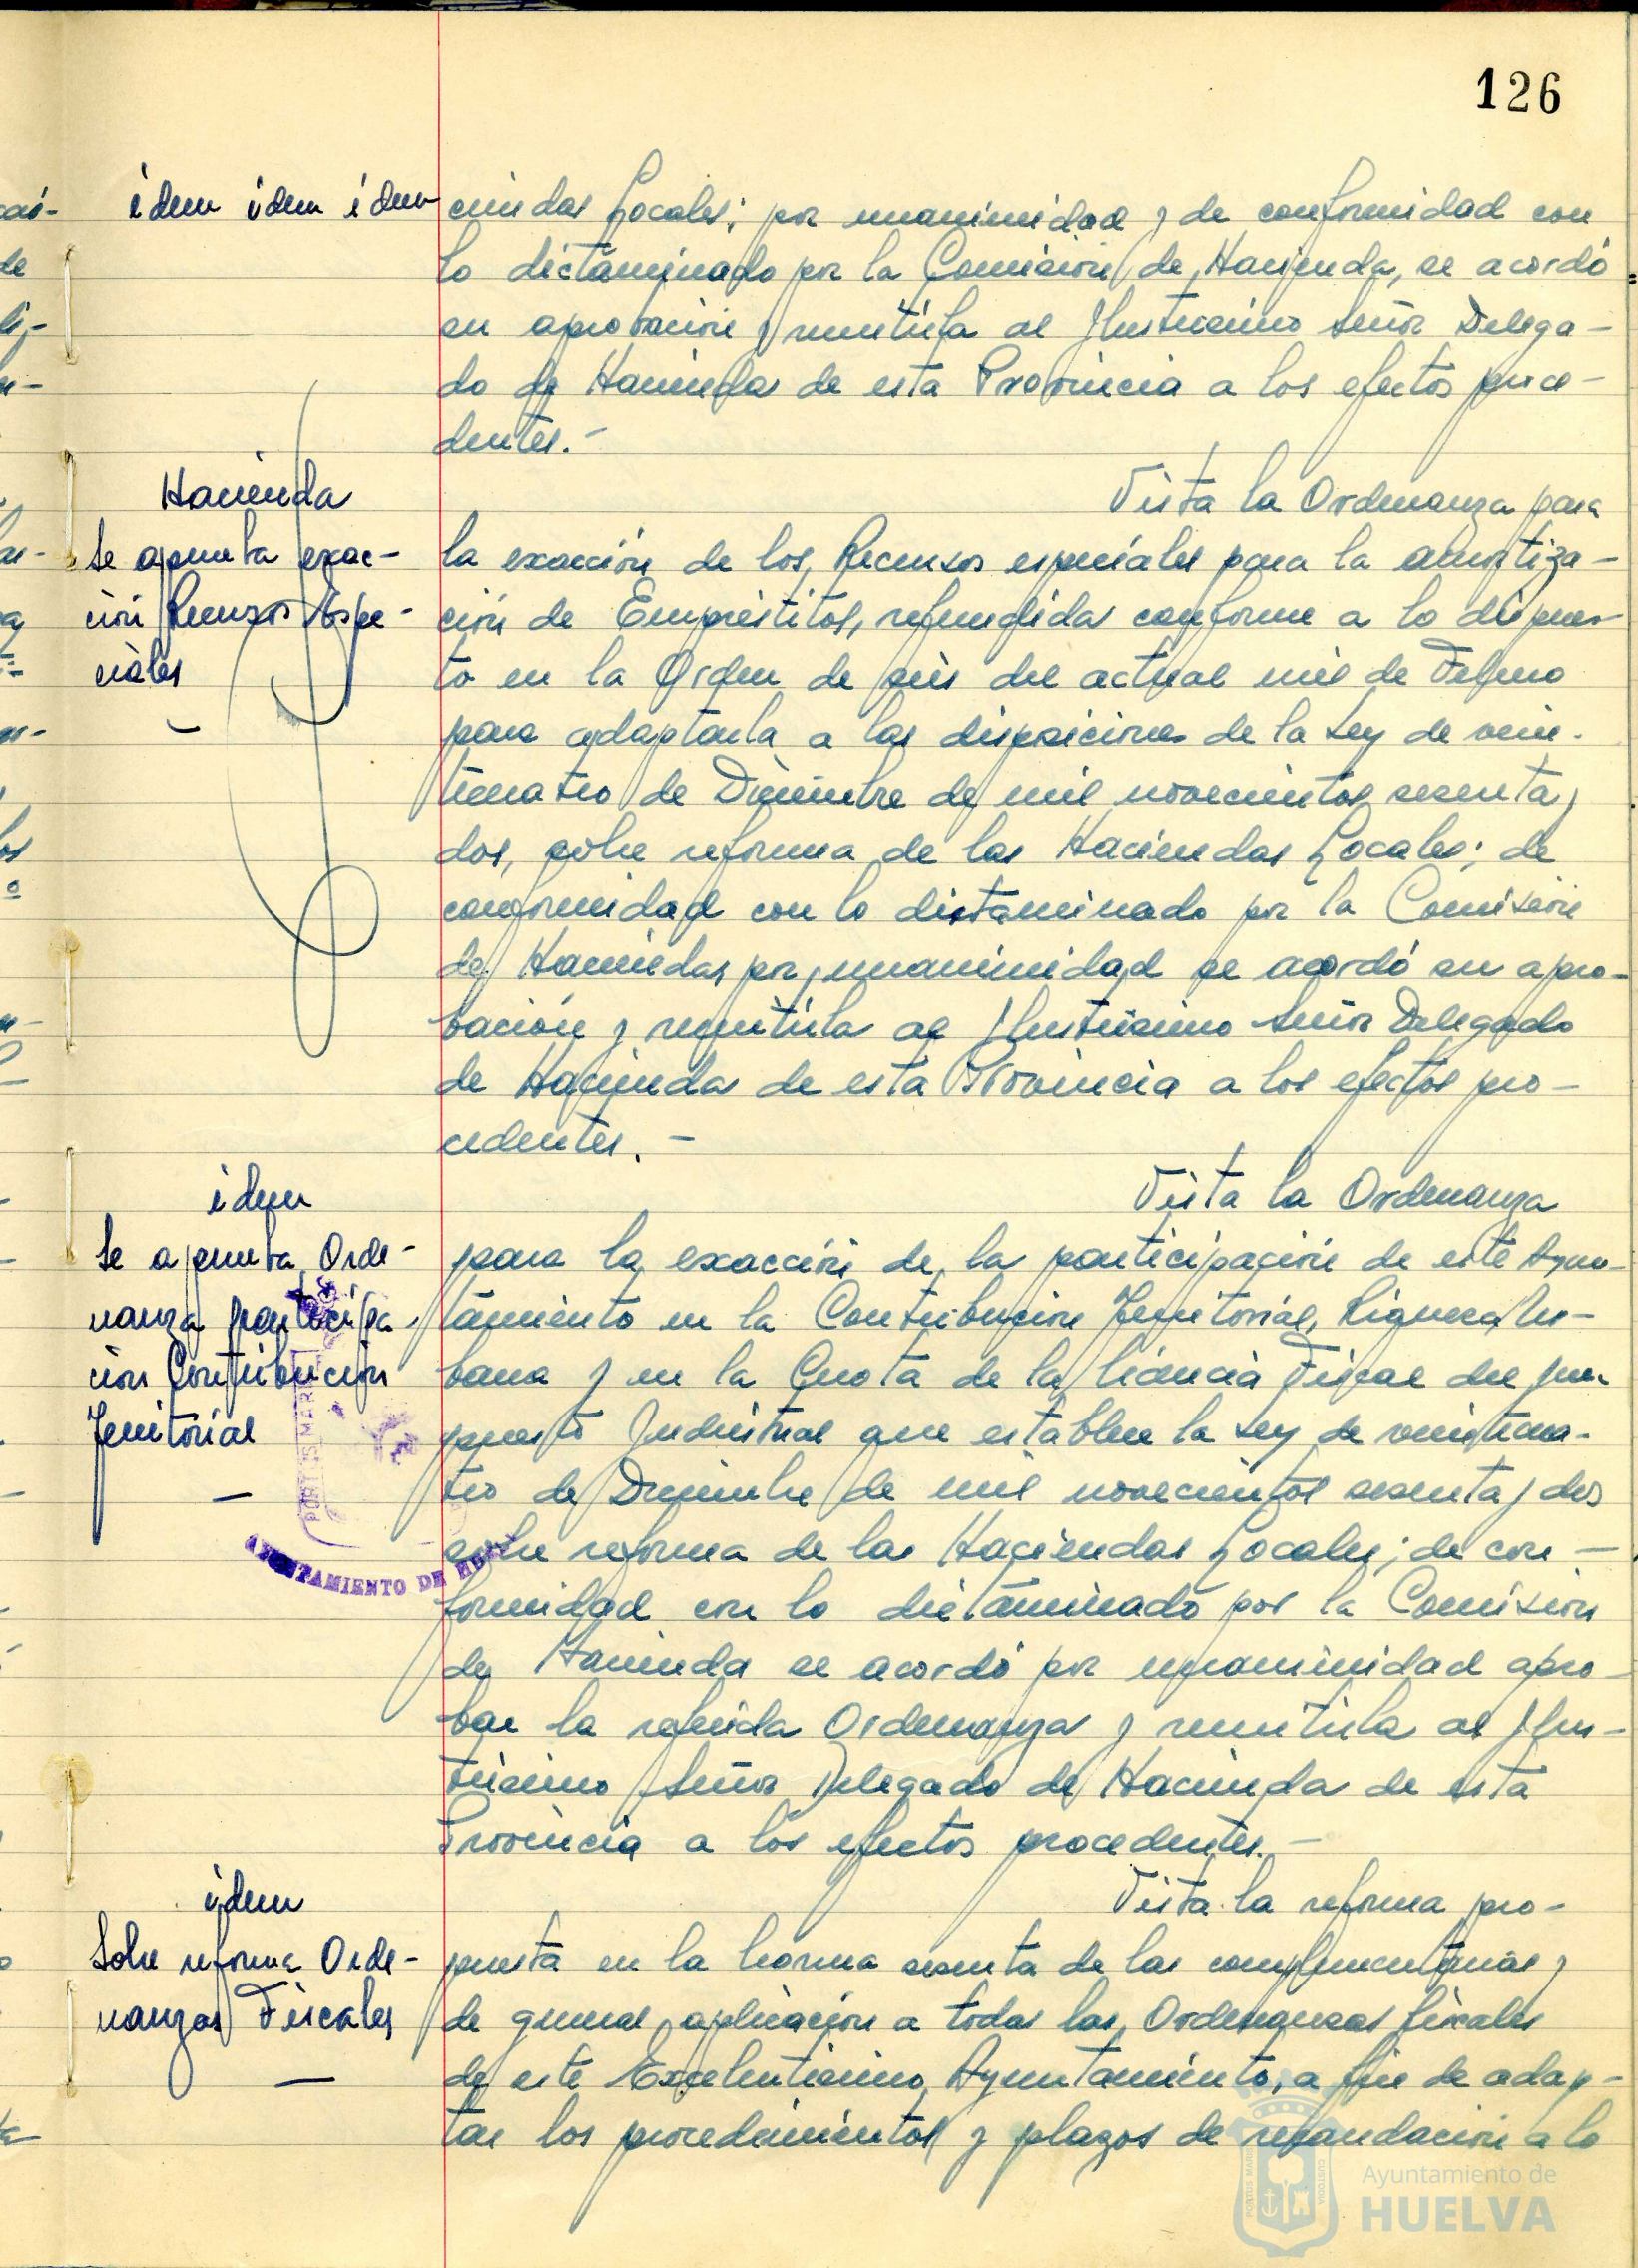 126
idem idem idem
ciendas Locales; por unanimidad y de conformidad con
lo dictaminado por la Comisión de Hacienda, se acordó
su aprobación y remitirla al Ilustrísimo Señor Delega-
do de Hacienda de esta Provincia a los efectos proce-
dentes.-
Hacienda
Se aprueba exac-
ción Recursos Espe-
ciales
Vista la Ordenanza para
la exacción de los Recursos especiales para la amortiza-
ción de Empréstitos, refundida conforme a lo dispues-
to en la Orden de seis del actual mes de Febrero
para adaptarla a las disposiciones de la Ley de vein-
ticuatro de Diciembre de mil novecientos sesenta y
dos, sobre reforma de las Haciendas Locales; de
conformidad con lo dictaminado por la Comisión
de Hacienda, por unanimidad se acordó su apro-
bación y remitirla al Ilustrísimo Señor Delegado
de Hacienda de esta Provincia a los efectos pro-
cedentes.-
idem
Se aprueba Orde-
nanza participa-
ción Contribución
Territorial
Vista la Ordenanza
para la exacción de la participación de este Ayun-
tamiento en la Contribución Territorial, Riqueza Ur-
bana y en la Cuota de la licencia Fiscal del Im-
puesto Industrial que establece la Ley de veinticua-
tro de Diciembre de mil novecientos sesenta y dos
sobre reforma de las Haciendas Locales; de con-
formidad con lo dictaminado por la Comisión
de Hacienda se acordó por unanimidad apro-
bar la referida Ordenanza y remitirla al Ilus-
trísimo Señor Delegado de Hacienda de esta
Provincia a los efectos procedentes.-
PORTUS MARIS
AYUNTAMIENTO DE HUELVA
idem
Sobre reforma Orde-
nanzas Fiscales
Vista la reforma pro-
puesta en la norma sesenta de las complementarias y
de general aplicación a todas las Ordenanzas fiscales
de este Excelentísimo Ayuntamiento, a fin de adap-
tar los procedimientos y plazos de recaudación a lo
Ayuntamiento de
HUELVA